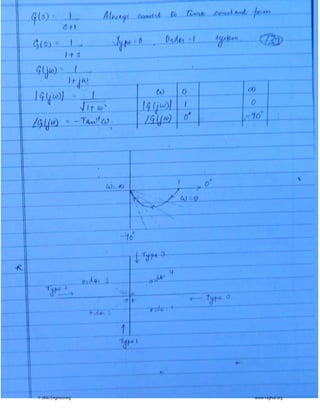 G(s) = 1 / s+1 Always convert to Time constant form
G(s) = 1 / 1+s Type-0 Order-1 system
G(jω) = 1 / 1+jω
|G(jω)| = 1 / √1+ω²
∠G(jω) = -Tan⁻¹ω
ω 0 ∞
|G(jω)| 1 0
∠G(jω) 0° -90°
ω=∞ 1 0°
ω=0
-90°
Type 3
order 4
order 3
Type 2
Type 0
order 1
Type 1